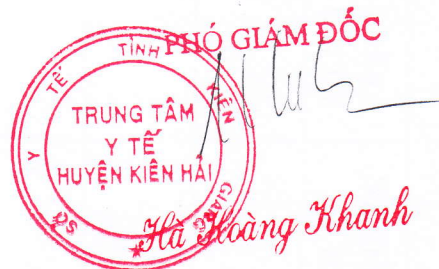 PHÓ GIÁM ĐỐC
SỞ Y TẾ TỈNH KIÊN GIANG
TRUNG TÂM
Y TẾ
HUYỆN KIÊN HẢI
Hà Hoàng Khanh